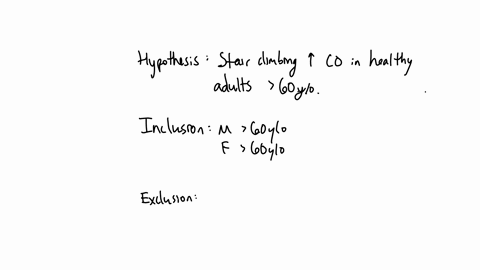 Hypothesis: Stair climbing ↑ CO in healthy
adults >60y/o.
Inclusion: M >60y/o
F >60y/o
Exclusion: